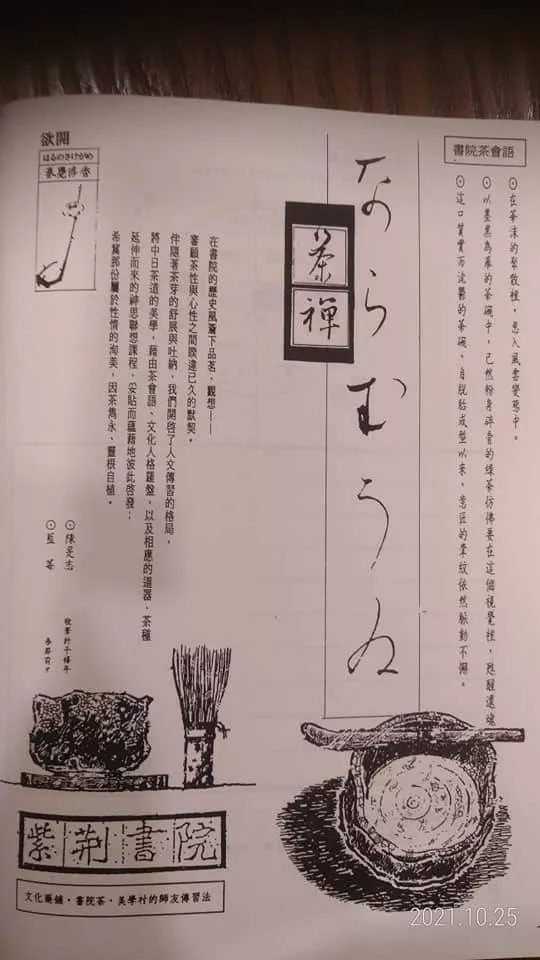 書院茶會語
⊙在華沫的聚散裡，思入風雲變態中。
⊙以墨黑為幕的茶碗中，已然粉身碎骨的綠茶彷彿要在這個視覺裡，甦醒還魂
⊙這口質實而沈鬱的茶碗，自脫胎成型以來，意匠的掌紋依然脈動不懈。
ならむうゐ
茶禪
在書院的歷史風簷下品茗、觀想——
審顧茶性與心性之間睽違已久的默契。
伴隨著茶芽的舒展與吐納，我們開啓了人文傳習的格局，
將中日茶道的美學，藉由茶會語、文化人格羅盤，以及相應的道器、茶種
延伸而來的神思聯想課程，妥貼而蘊藉地彼此啓發；
希冀那份屬於性情的洵美，因茶雋永、靈根自植。
欲開
はるのさけがめ
春甕浮香
⊙陳旻志
⊙藍苓
紫荊書院
文化藥鋪・書院茶・美學村的師友傳習法
2021.10.25